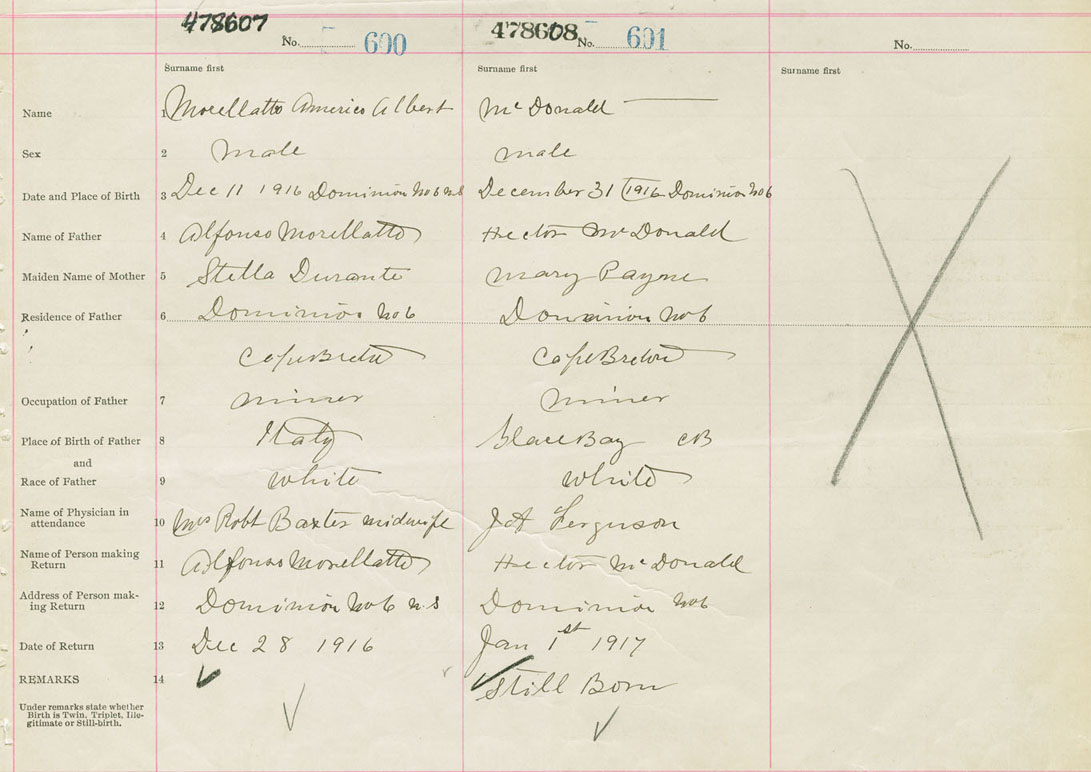 478607 478608
No. 600 No. 601 No.
Surname first Surname first Surname first
Name 1 Morellatto Americo Albert McDonald
Sex 2 male male
Date and Place of Birth 3 Dec 11 1916 Dominion No 6 N.S December 31 1916 Dominion No 6
Name of Father 4 Alfonso Morellatto Hector McDonald
Maiden Name of Mother 5 Stella Durante Mary Payne
Residence of Father 6 Dominion No 6 Dominion No 6
Cape Breton Cape Breton
Occupation of Father 7 miner miner
Place of Birth of Father 8 Italy Glace Bay CB
and
Race of Father 9 white white
Name of Physician in
attendance 10 Mrs Robt Baxter midwife J A Ferguson
Name of Person making
Return 11 Alfonso Morellatto Hector McDonald
Address of Person mak-
ing Return 12 Dominion No 6 N.S Dominion No 6
Date of Return 13 Dec 28 1916 Jan 1st 1917
REMARKS 14 Still Born
Under remarks state whether
Birth is Twin, Triplet, Ille-
gitimate or Still-birth.